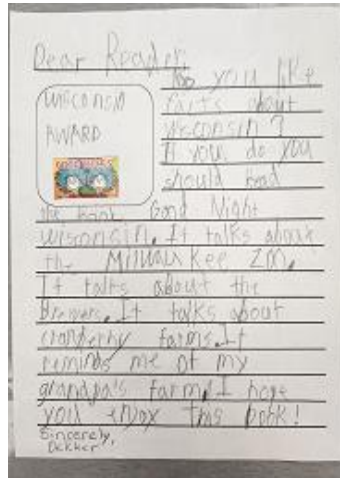 Dear Reader,
Do you like
WISCONSIN
facts about
AWARD
Wisconsin?
If you do you
should read
the book Good Night
Wisconsin. It talks about
the Milwaukee Zoo.
It talks about the
Brewers. It talks about
cranberry farms. It
reminds me of my
grandpa's farm. I hope
you enjoy this book!
Sincerely,
Dekker